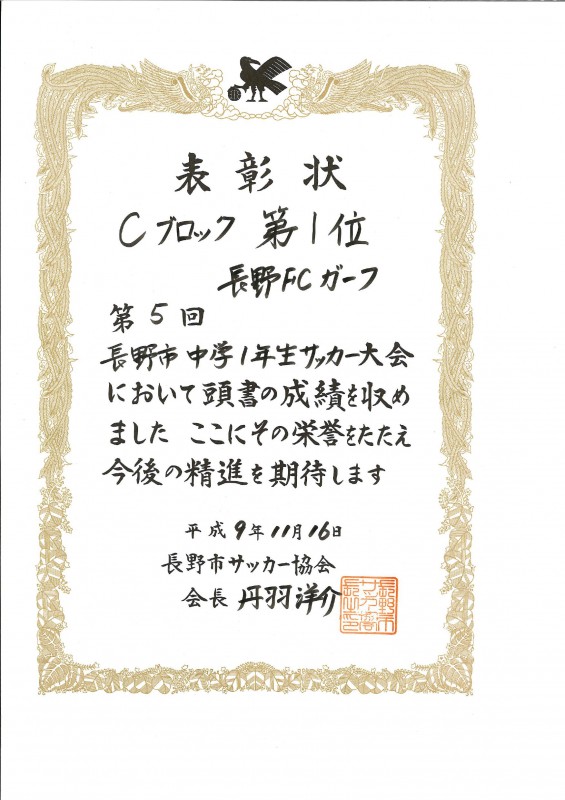 表彰状
Cブロック 第1位
長野FCガーフ
第5回
長野市中学1年生サッカー大会
において頭書の成績を収め
ました ここにその栄誉をたたえ
今後の精進を期待します
平成9年11月16日
長野市サッカー協会
会長 丹羽洋介